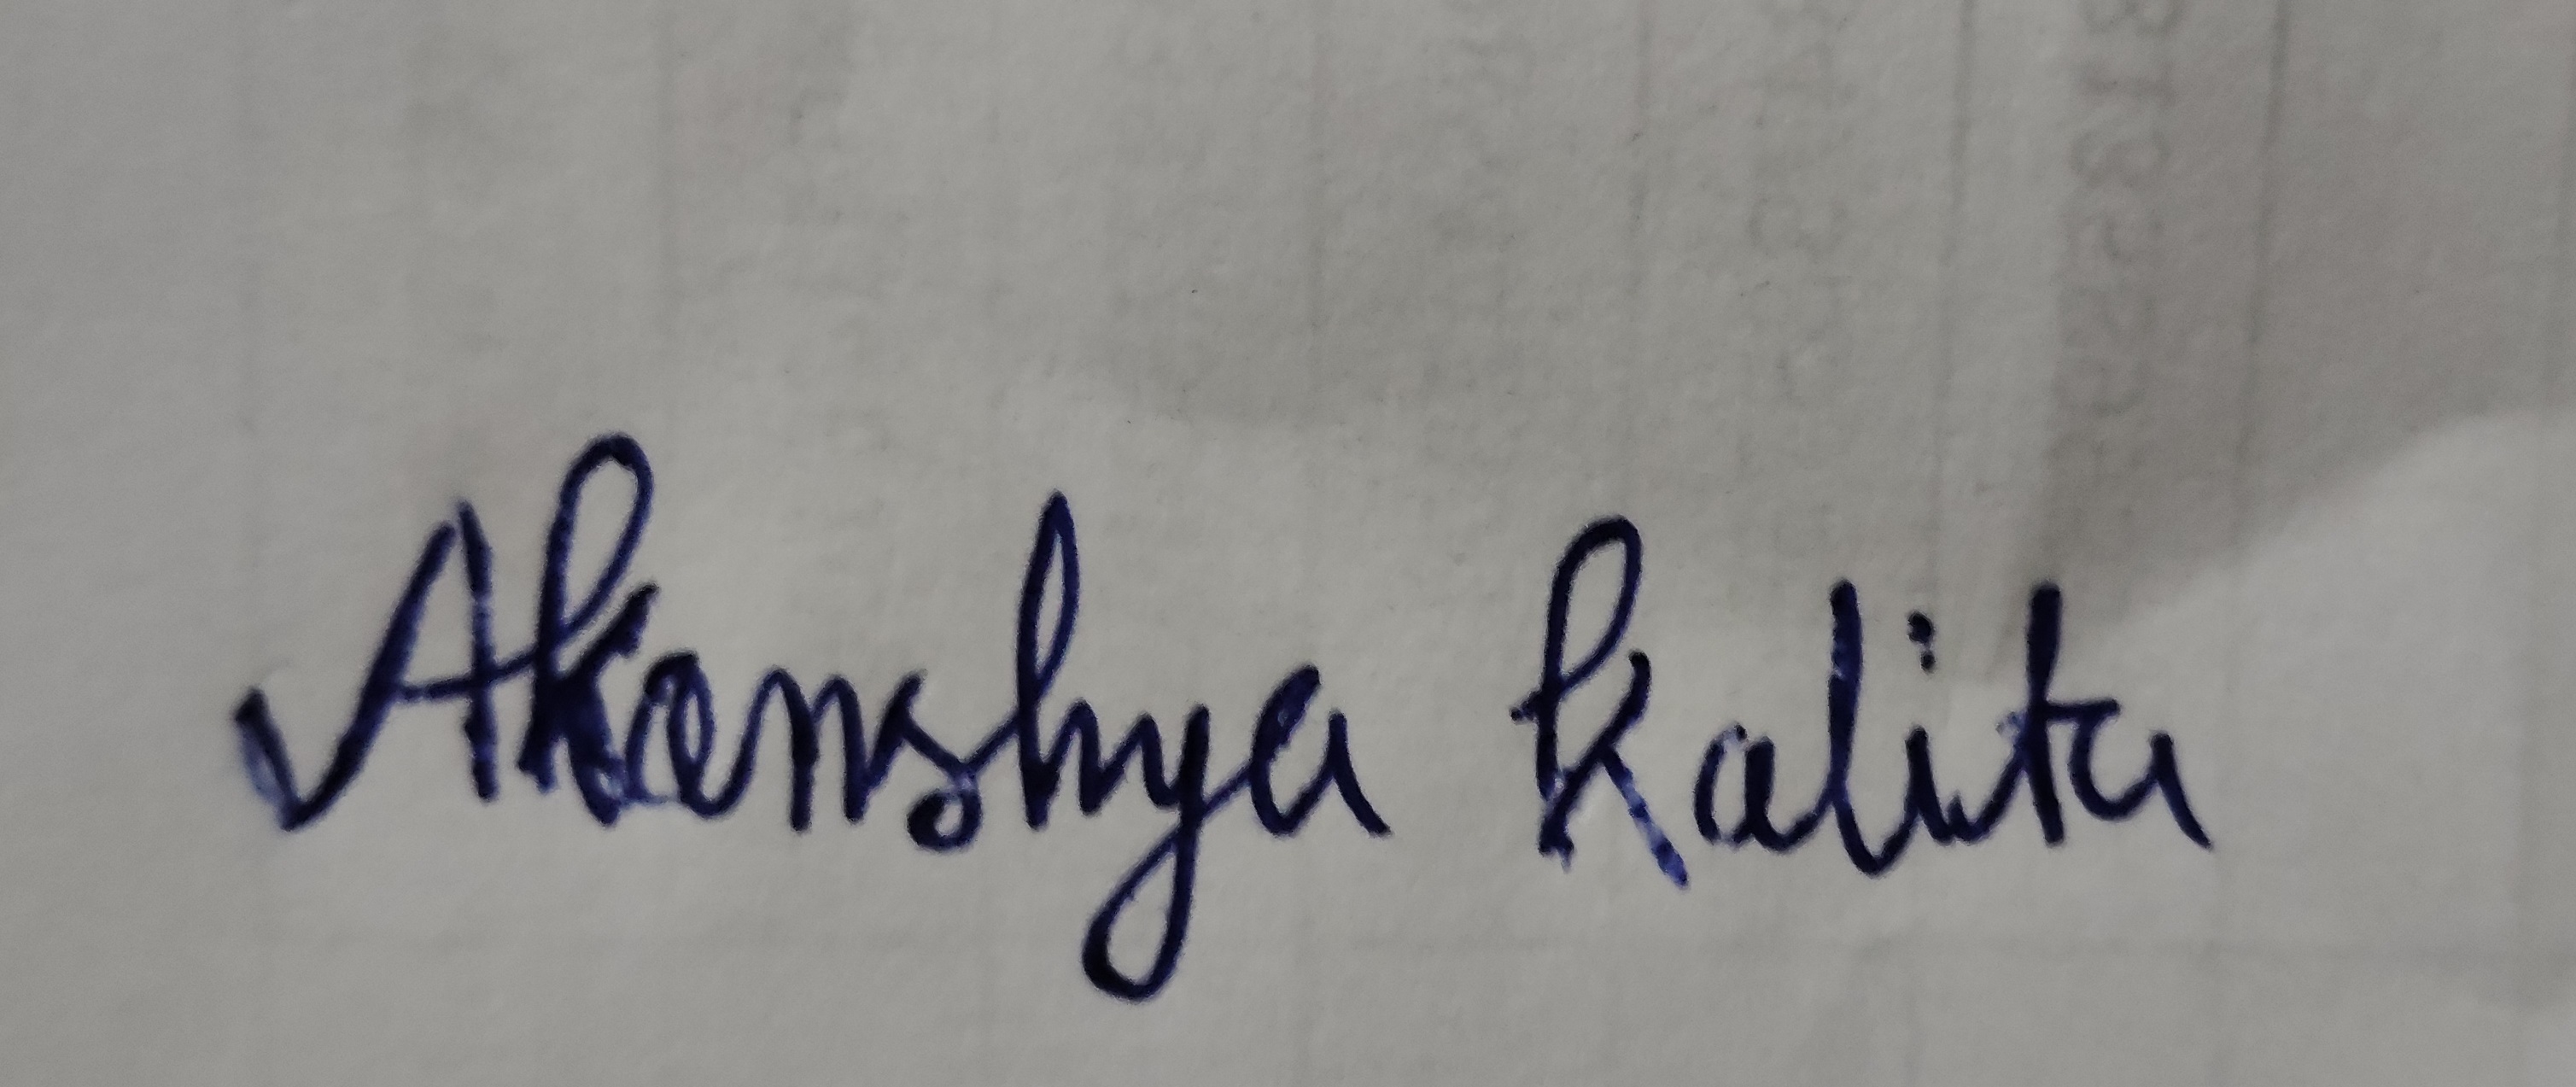 Akanshya Kalita